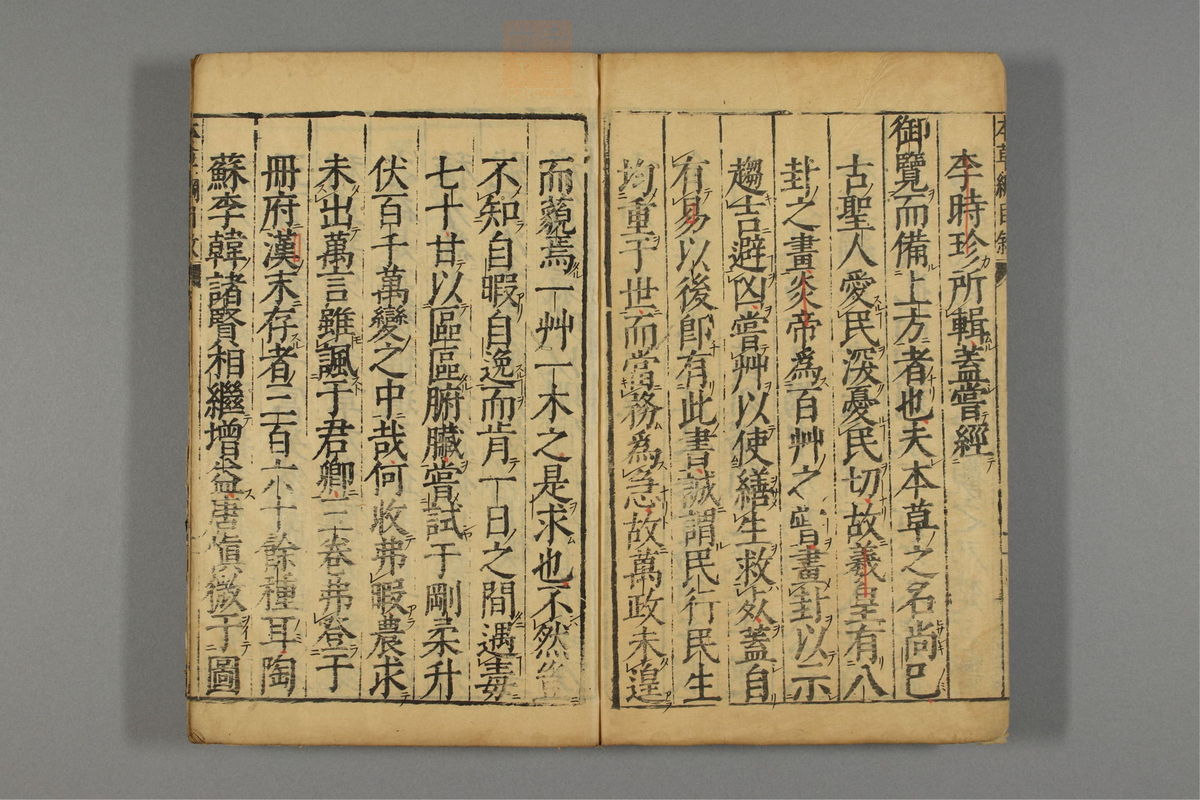 李時珍所輯蓋嘗經
御覽而備上方者也夫本草之名尚已
古聖人愛民深憂民切故羲皇有八
卦之畫炎帝爲百艸之嘗畫卦以示
趨吉避凶嘗艸以使繕生救夭蓋自
有易以後卽有此書誠謂民行民生
均重于世而當務爲急故萬政未遑
而藐焉一艸一木之是求也不然豈
不知自暇自逸而肯一日之間遇毒
七十甘以區區腑臟嘗試于剛柔升
伏百千萬變之中哉何收弗暇農求
未出萬言雖諷于君卿三卷弗登于
冊府漢末存者三百六十餘種耳陶
蘇李韓諸賢相繼增益唐愼微于圖